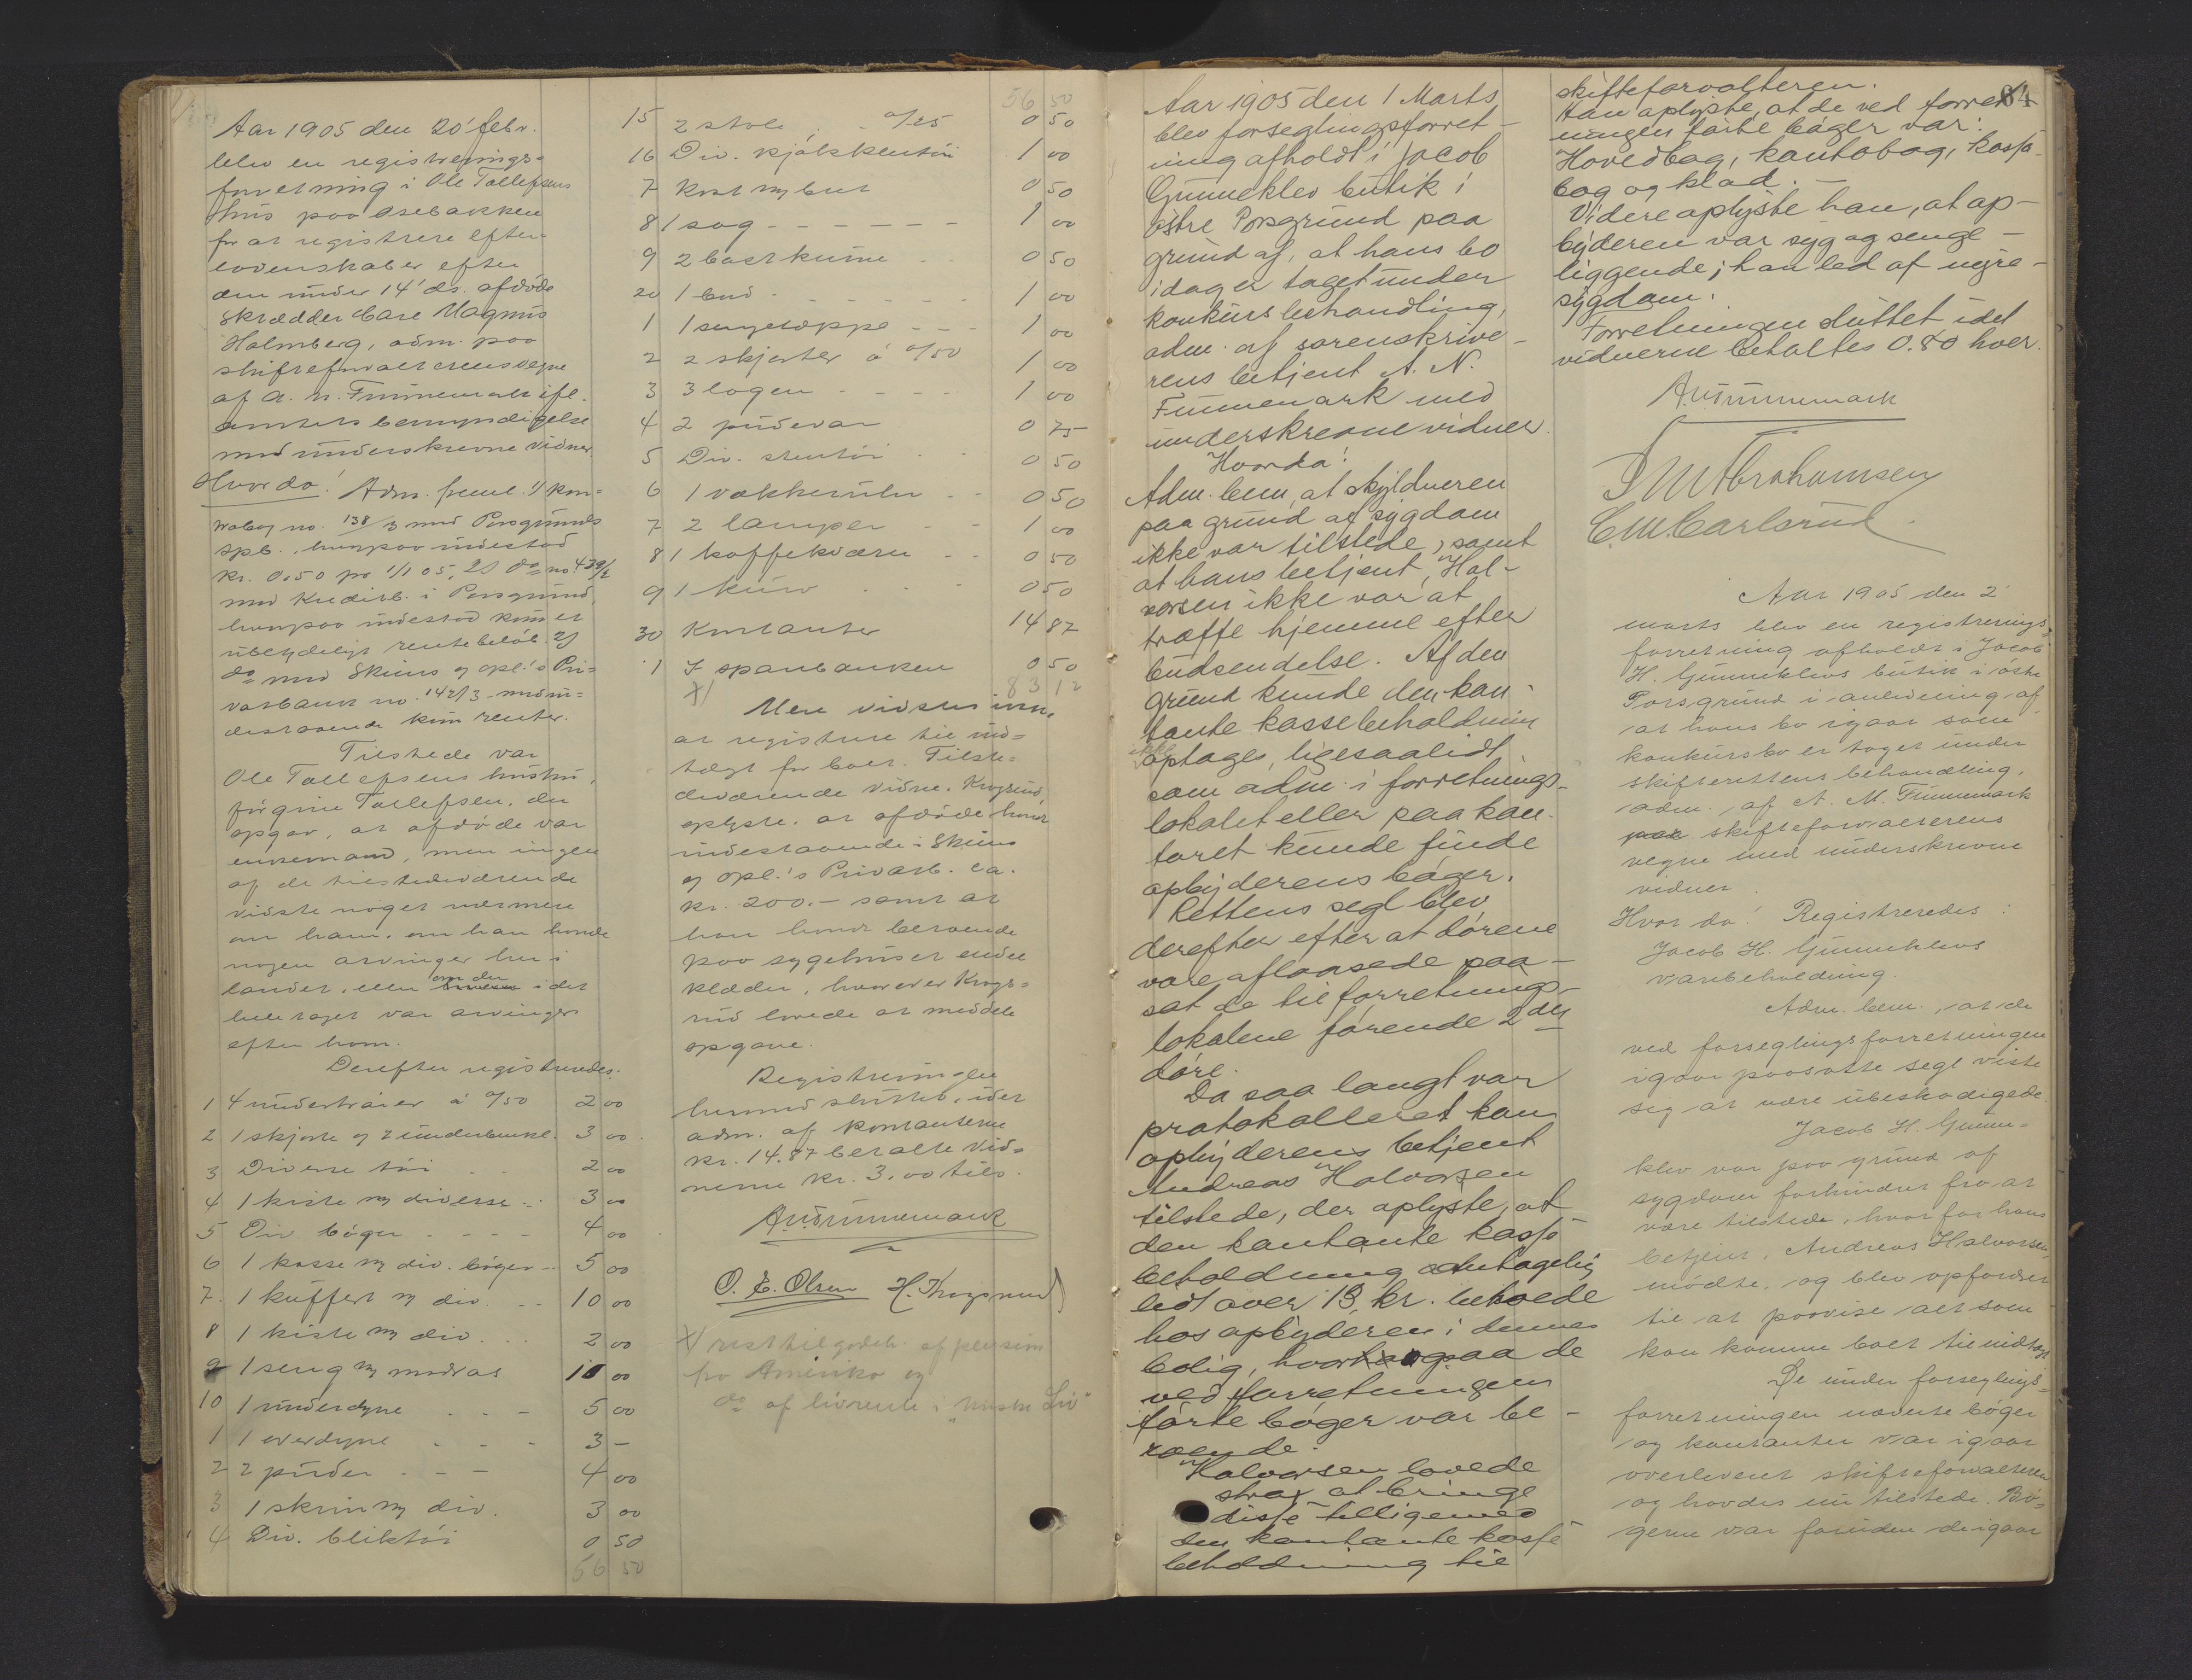 Aar 1905 den 20' febr.
blev en registrerings-
forretning i Ole Tollefsens
hus paa Osebakken
for at registrere efter-
ladenskaber efter
den under 14' ds. afdöde
skrædder Carl Magnus
Holmberg, adm. paa
skifteforvalterens vegne
af A. N. Funnemark ifl.
amtets bemyndigelse
med underskrevne vidner.
Hvor da! Adm. freml. 1) kon-
trabog no. 138/3 med Porsgrunds
spb. hvorpaa indestod
kr. 0.50 pr 1/1 05, 2) do no 439/2
med Kreditb. i Porsgrund,
hvorpaa indestod kun et
ubetydeligt rentebelöb 3)
do med Skiens og opl.'s Pri-
vatbank no. 142/3 med in-
destaaende kun renter.
Tilstede var
Ole Tollefsens hustru,
Jörgine Tollefsen, der
opgav, at afdöde var
enkemand, men ingen
af de tilstedeværende
vidste noget nærmere
om ham, om han havde
nogen arvinger her i
landet, eller om der i det
hele taget var arvinger
efter ham.
Derefter registreredes:
1 4 undertröier á 0/50 2 00
2 1 skjorte og 2 underbenkl. 3 00
3 Diverse töi 2 00
4 1 kiste m diverse 3 00
5 Div böger 4 00
6 1 kasse m div. böger 5 00
7 1 kuffert m div. 10 00
8 1 kiste m div. 2 00
9 1 seng m madras 10 00
10 1 underdyne 5 00
1 1 overdyne 3 -
2 2 puder 4 00
3 1 skrin m div. 3 00
4 Div. bliktöi 0 50
56 50
56 50
15 2 stole 0/25 0 50
16 Div. kjökkentöi 1 00
7 kost og bret 0 50
8 1 sag 1 00
9 2 bastkurve 0 50
20 1 bord 1 00
1 1 sengetæppe 1 00
2 2 skjorter á 0/50 1 00
3 3 lagen 1 00
4 2 pudevar 0 75
5 Div. stentöi 0 50
6 1 vækkeruhr 0 50
7 2 lamper 1 00
8 1 kaffekværn 0 50
9 1 kurv 0 50
30 Kontanter 14 87
1 I sparebanken 0 50
x) 83 12
Mere vidstes ikke
at registrere til ind-
tægt for boet. Tilste-
deværende vidne, Krogsrud,
oplyste, at afdöde havde
indestaaende i Skiens
og opl.'s Privatb. ca.
kr. 200.- samt at
han havde beroende
paa sygehuset endel
klæder, hvorover Krogs-
rud lovede at meddele
opgave.
Registreringen
hermed sluttet, idet
adm. af kontanterne
kr. 14.87 betalte vid-
nerne kr. 3.00 tils.
A. N. Funnemark
O. E. Olsen H. Krogsrud
x) rest tilgodeh. af pension
fra Amerika og
do af livrente i "Norske Liv"
84
Aar 1905 den 1 Marts
blev forseglingsforret-
ning afholdt i Jacob
Gunneklev butik i
östre Porsgrund paa
grund af, at hans bo
idag er taget under
konkursbehandling,
adm. af sorenskrive-
rens betjent A. N.
Funnemark med
underskrevne vidner.
Hvorda!
Adm. bem. at skyldneren
paa grund af sygdom
ikke var tilstede, samt
at hans betjent, Hal-
vorsen ikke var at
træffe hjemme efter
budsendelse. Af den
grund kunde den kon-
tante kassebeholdning
ikke optages, ligesaalidt
som adm. i forretnings-
lokalet eller paa kon-
toret kunde finde
opbyderens böger.
Rettens segl blev
derefter efter at dörene
vare aflaasede paa-
sat de til forretnings-
lokalene förende 2 de
döre.
Da saa langt var
protokolleret kom
opbyderens betjent
Andreas Halvorsen
tilstede, der oplyste, at
den kontante kasse-
beholdning antagelig
lidt over 13 kr. beroede
hos opbyderen i dennes
bolig, hvor ogsaa de
ved forretningen
förte böger var be-
roende.
Halvorsen lovede
strax at bringe
disse tilligemed
den kontante kasse-
beholdning til
skifteforvalteren.
Han oplyste, at de ved forret-
ningen förte böger var:
Hovedbog, kontobog, kasse-
bog og klad.
Videre oplyste han, at op-
byderen var syg og senge-
liggende; han led af nyre-
sygdom.
Forretningen sluttet idet
vidnerne betaltes 0.80 hver.
A. N. Funnemark
S M Abrahamsen
C. M. Carlsrud.
Aar 1905 den 2'
marts blev en registrerings-
forretning afholdt i Jacob
H. Gunneklevs butik i östre
Porsgrund i anledning af
at hans bo igaar som
konkursbo er taget under
skifterettens behandling,
adm. af A. N. Funnemark
paa skifteforvalterens
vegne med underskrevne
vidner.
Hvor da! Registreredes:
Jacob H. Gunneklevs
varebeholdning.
Adm. bem., at de
ved forseglingsforretningen
igaar paasatte segl viste
sig at være ubeskadigede.
Jacob H. Gunne-
klev var paa grund af
sygdom forhindret fra at
være tilstede, hvorfor hans
betjent, Andreas Halvorsen
mödte, og blev opfordret
til at paavise alt som
kan komme boet til indtægt.
De under forseglings-
forretningen nævnte böger
og kontanter var igaar
overleveret skifteforvalteren
og havdes nu tilstede. Bö-
gerne var foruden de igaar